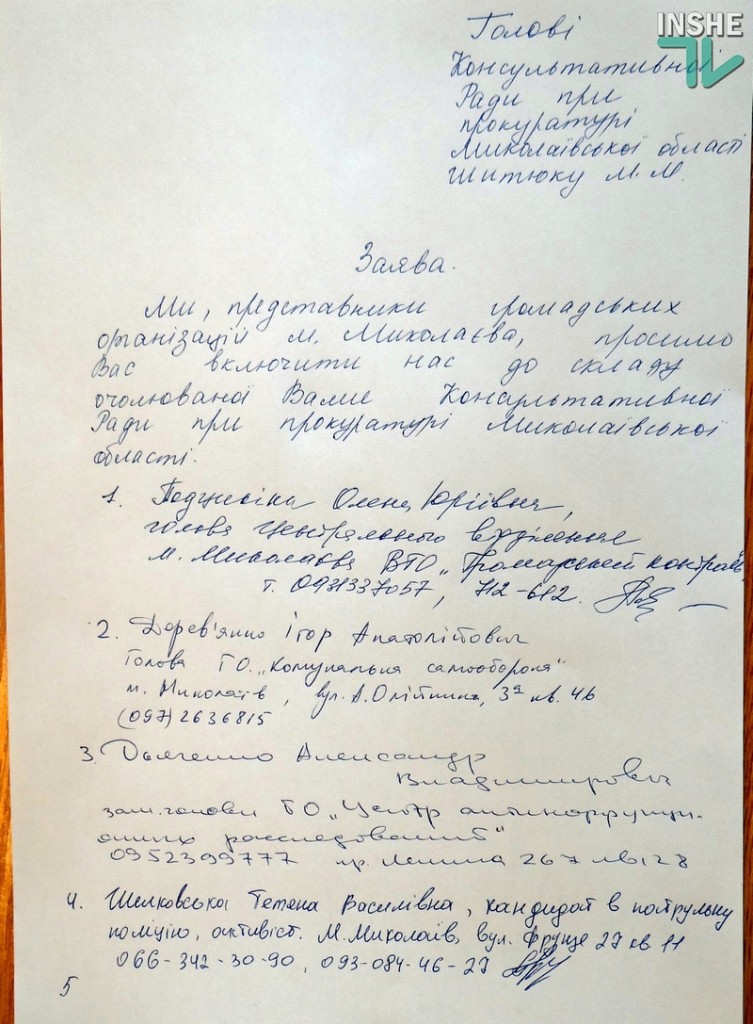 INSHE
TV
Голові
Консультативної
Ради при
прокуратурі
Миколаївської області
Шитюку М. М.
Заява.
Ми, представники громадських
організацій м. Миколаєва, просимо
Вас включити нас до складу
очолюваної Вами Консультативної
Ради при прокуратурі Миколаївської
області.
1. Олена Юріївна,
голова Центрального відділення
м. Миколаєва ВГО „Громадський контроль"
т. 0931337057, 712-612.
2. Дерев'янко Ігор Анатолійович
Голова ГО „Комунальна самооборона"
м. Миколаїв, вул. А. Олійника, 3а кв. 46
(097) 2636815
3. Дьяченко Александр
Владимирович
зам. голови ГО „Центр антикоррупци-
онных расследований"
0952399777 пр. Ленина 267 кв 128
4. Шелковська Тетяна Василівна, кандидат в патрульну
поліцію, активіст. М. Миколаїв, вул. Фрунзе 27 кв 11
066-342-30-90, 093-084-46-27
5